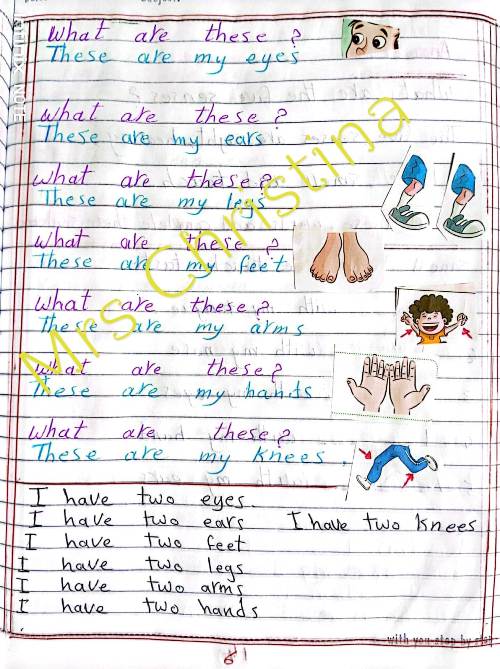 What are these ?
These are my eyes
What are these ?
These are my ears
What are these ?
These are my legs
What are these ?
These are my feet
What are these ?
These are my arms
What are these?
These are my hands
What are these?
These are my knees .
I have two eyes.
I have two ears I have two knees
I have two feet
I have two legs
I have two arms
I have two hands
Mrs Christina
6